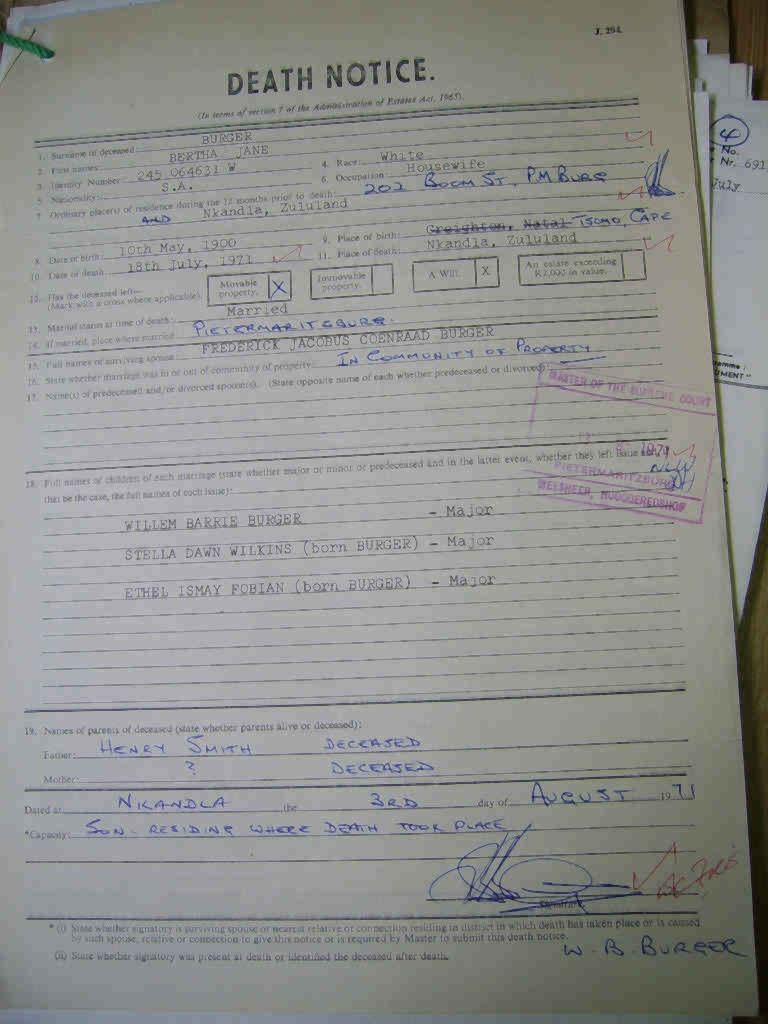 J. 294.
DEATH NOTICE.
(In terms of section 7 of the Administration of Estates Act, 1965).
1. Surname of deceased: BURGER
2. First names: BERTHA JANE
3. Identity Number: 245 064631 W 4. Race: White
5. Nationality: S.A. 6. Occupation: Housewife
7. Ordinary place(s) of residence during the 12 months prior to death: 202 BOOM ST, PMBURG
AND Nkandla, Zululand
8. Date of birth: 10th May, 1900 9. Place of birth: Creighton, Natal TSOMO, CAPE
10. Date of death: 18th July, 1971 11. Place of death: Nkandla, Zululand
12. Has the deceased left— (Mark with a cross where applicable) Movable property. X Immovable property. A Will. X An estate exceeding R2,000 in value.
13. Marital status at time of death: Married
14. If married, place where married: PIETERMARITZBURG.
15. Full name of surviving spouse: FREDERICK JACOBUS COENRAAD BURGER
16. State whether marriage was in or out of community of property: IN COMMUNITY OF PROPERTY
17. Name(s) of predeceased and/or divorced spouse(s). (State opposite name of each whether predeceased or divorced)
MASTER OF THE SUPREME COURT
PIETERMARITZBURG
WEESHEER, HOOGGEREGSHOF
18. Full names of children of each marriage (state whether major or minor or predeceased and in the latter event, whether they left issue and, if
that be the case, the full names of such issue):
WILLEM BARRIE BURGER - Major
STELLA DAWN WILKINS (born BURGER) - Major
ETHEL ISMAY FOBIAN (born BURGER) - Major
19. Names of parents of deceased (state whether parents alive or deceased):
Father: HENRY SMITH DECEASED
Mother: ? DECEASED
Dated at NKANDLA the 3RD day of AUGUST 1971
*Capacity: SON - RESIDING WHERE DEATH TOOK PLACE
Signature
* (i) State whether signatory is surviving spouse or nearest relative or connection residing in district in which death has taken place or is caused
by such spouse, relative or connection to give this notice or is required by Master to submit this death notice.
W. B. BURGER
(ii) State whether signatory was present at death or identified the deceased after death.
4
No.
Nr. 691
July